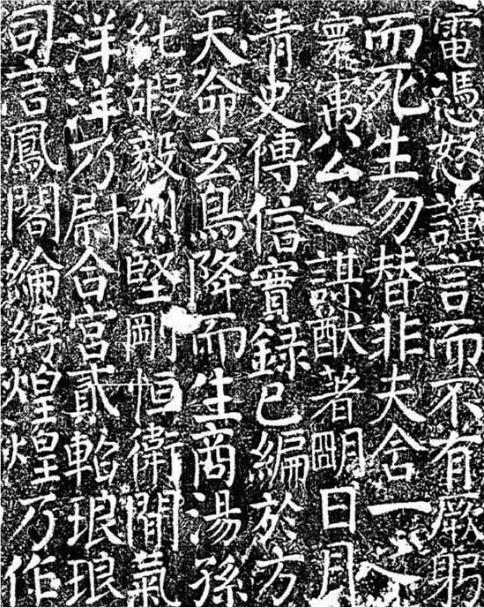 電憑怒謹言而不有厥躬
而死生勿替非夫含一之
寰寓公之謀猷著朙日月
青史傳信實録已編於方
天命玄鳥降而生商湯孫
純嘏毅烈堅剛恒衛間氣
洋洋乃尉合宮貳軺琅琅
司言鳳閣綸綍煌煌乃作